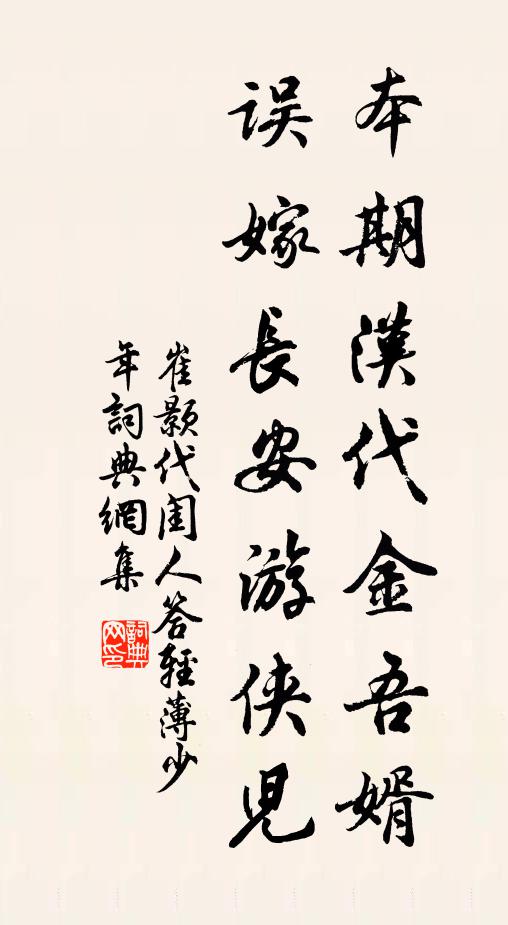 本期漢代金吾婿
误嫁長安游侠児
崔颢代闺人答輕薄少
年詞典網集
詞典
网印